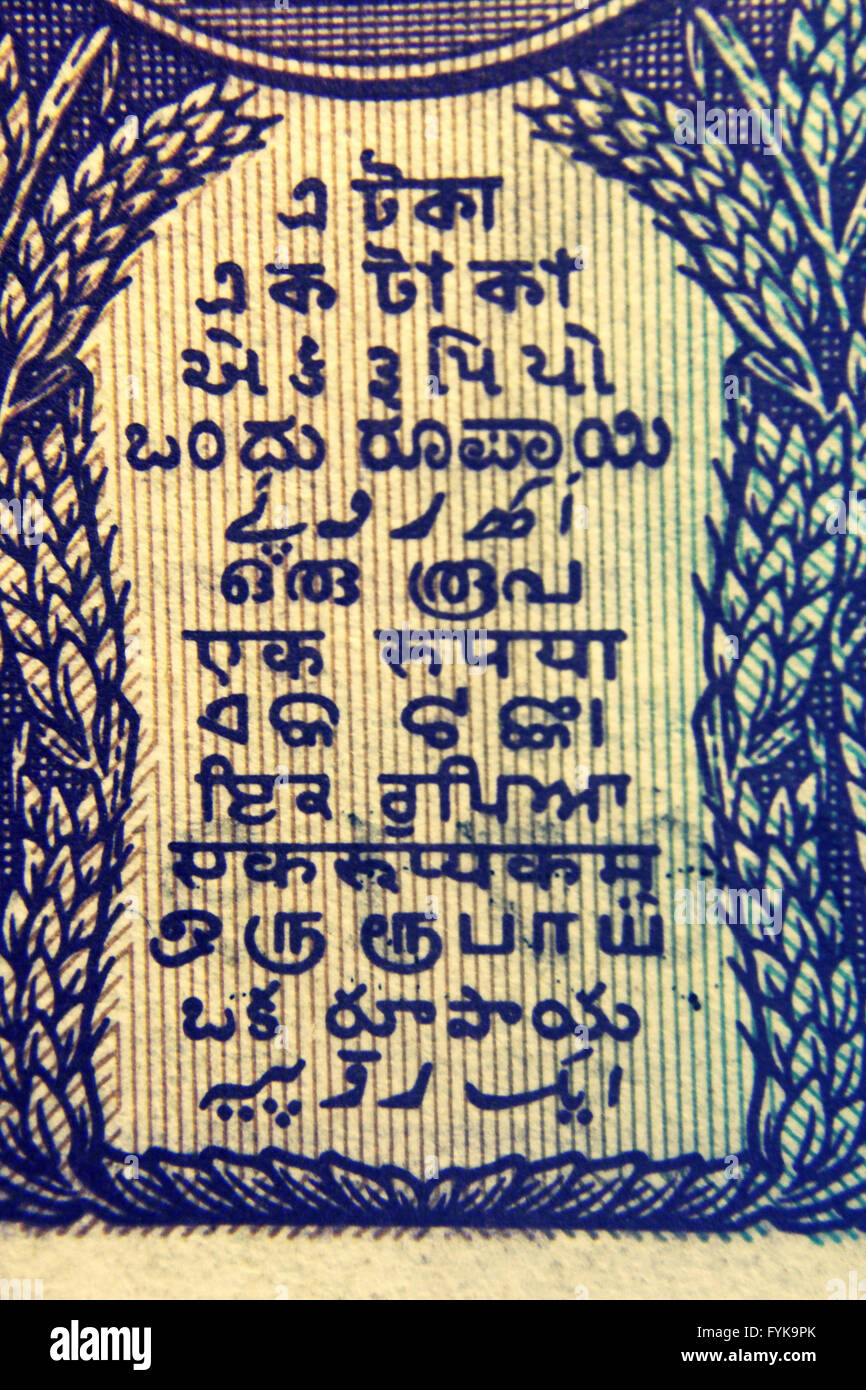 এটকা
এক টাকা
એક રૂપિયો
ಒಂದು ರೂಪಾಯಿ
ഒരു രൂപ
एक रुपया
ଏକ ଟଙ୍କା
ਇਕ ਰੁਪਿਆ
एकरूप्यकम्
ஒரு ரூபாய்
ఒక రూపాయ
ایک روپیہ
alamy
Image ID: FYK9PK
www.alamy.com